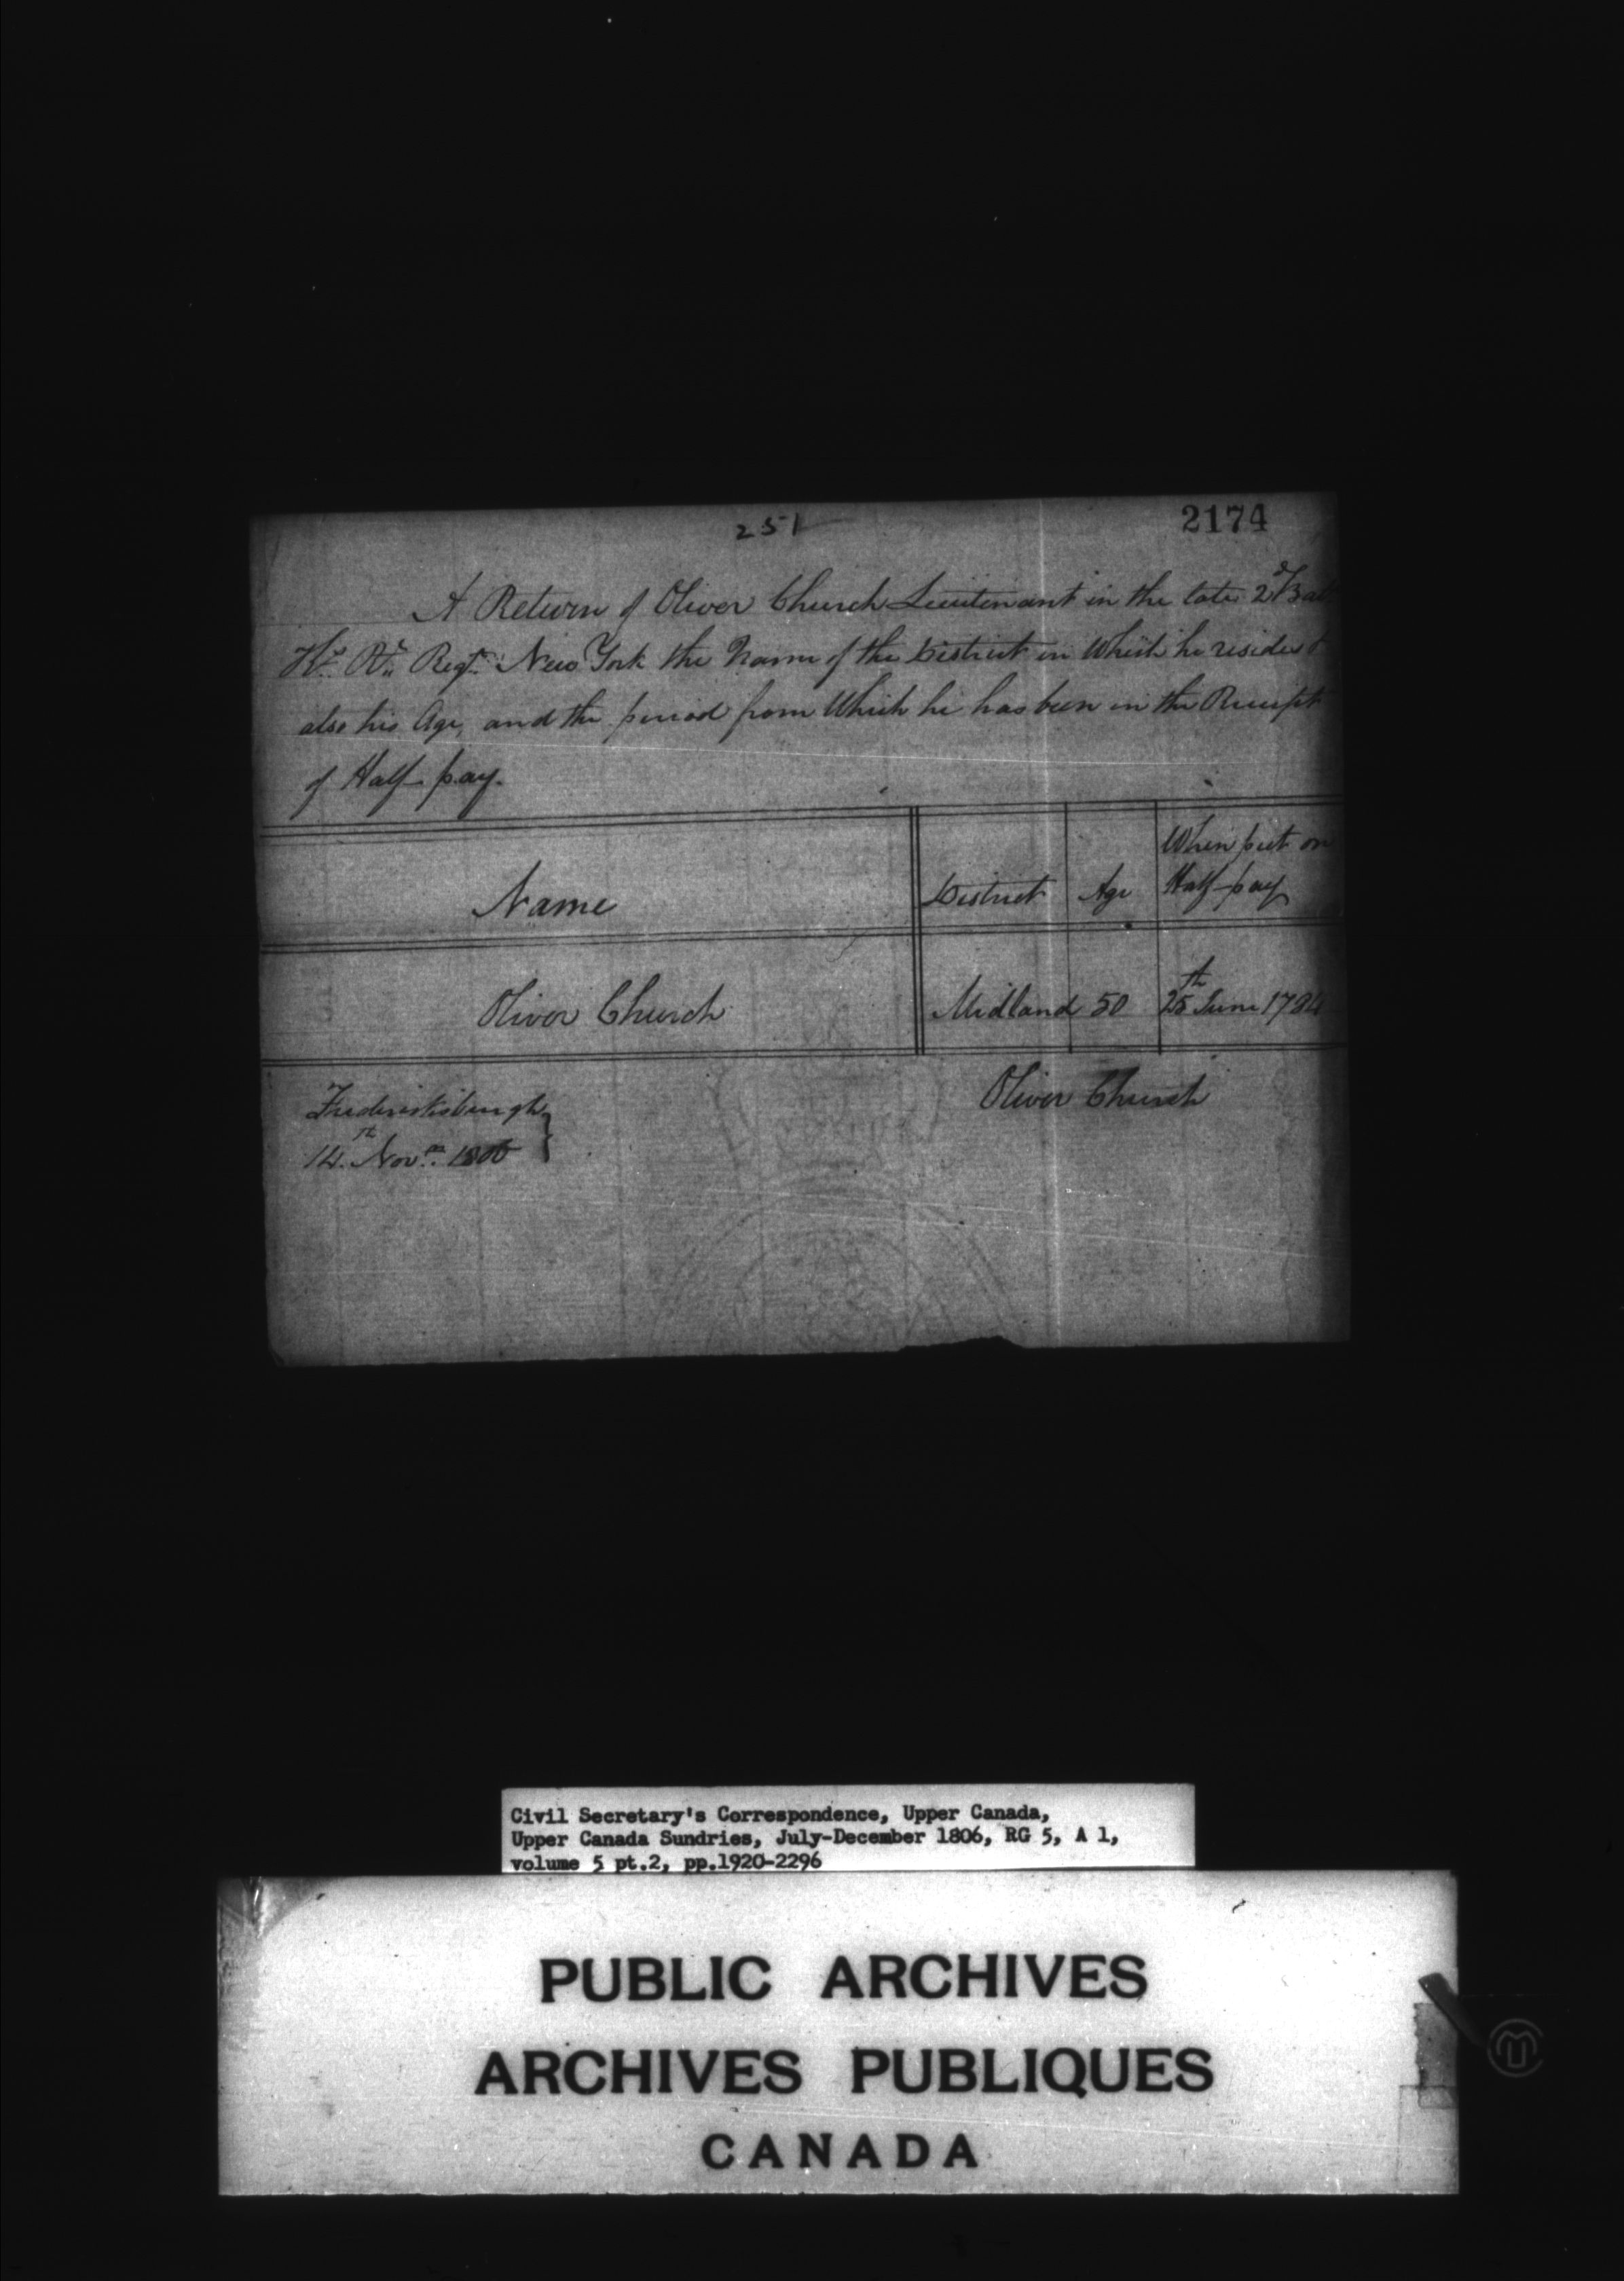 251
2174
A Return of Oliver Church Lieutenant in the late 2d Bat
Kgs Rl Regt New York the Name of the District in Which he resides &
also his Age, and the period from Which he has been in the Receipt
of Half-pay.
Name
District
Age
When put on
Half-pay
Oliver Church
Midland
50
25th June 1784
Oliver Church
Frederickburgh
14th Novr 1806
Civil Secretary's Correspondence, Upper Canada,
Upper Canada Sundries, July-December 1806, RG 5, A 1,
volume 5 pt.2, pp.1920-2296
PUBLIC ARCHIVES
ARCHIVES PUBLIQUES
CANADA